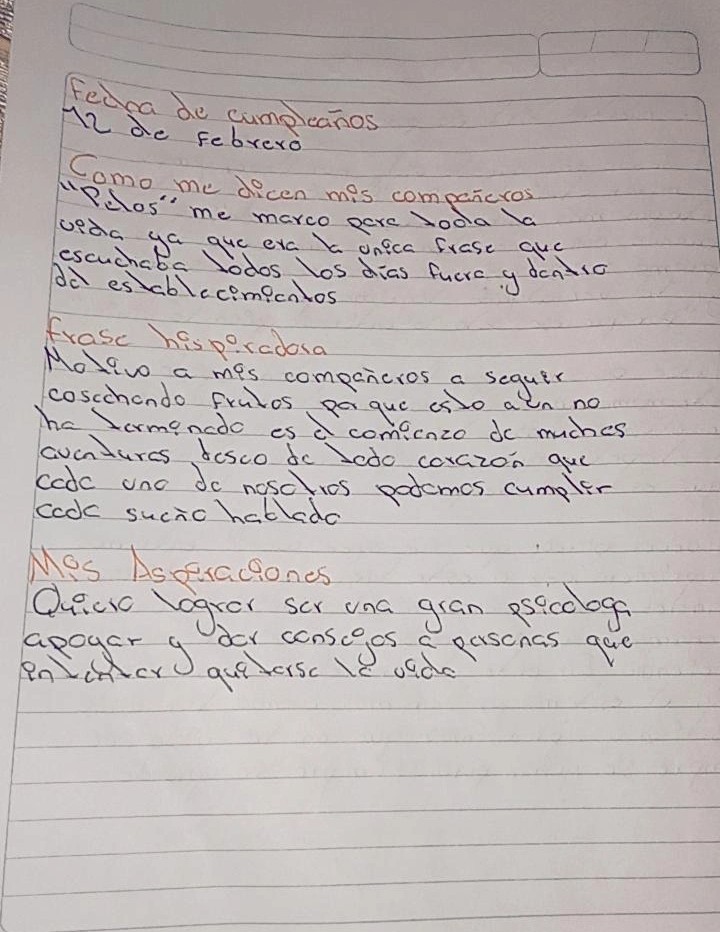 Fecha de cumpleaños
12 de Febrero
Como me dicen mis compañeros
"Pelos" me marco para toda la
vida ya que era la unica frase que
escuchaba todos los días fuera y dentro
del establecimientos
frase hispiradosa
Motivo a mis compañeros a seguir
cosechando frutos porque esto aun no
ha termenado es el comienzo de muchas
aventuras deseo de todo corazón que
cada uno de nosotros podemos cumplir
cada sueño hablado
Mis Aspiraciones
Quiero lograr ser una gran psicologa
apoyar y dar consejos a personas que
intentar quitarse la vida